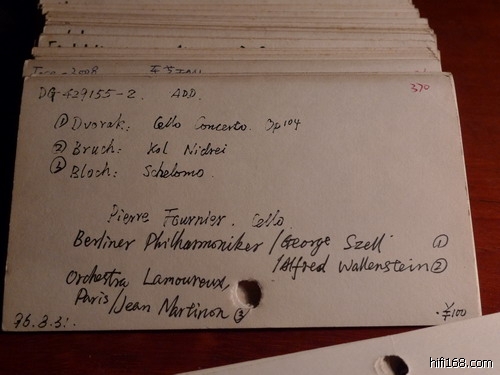 DG-429155-2. ADD. 370
① Dvorak: Cello Concerto. Op104
② Bruch: Kol Nidrei
③ Bloch: Schelomo.
Pierre Fournier. Cello
Berliner Philharmoniker / George Szell ①
/ Alfred Wallenstein ②
Orchestra Lamoureux
Paris / Jean Martinon ③
¥100
hifi168.com